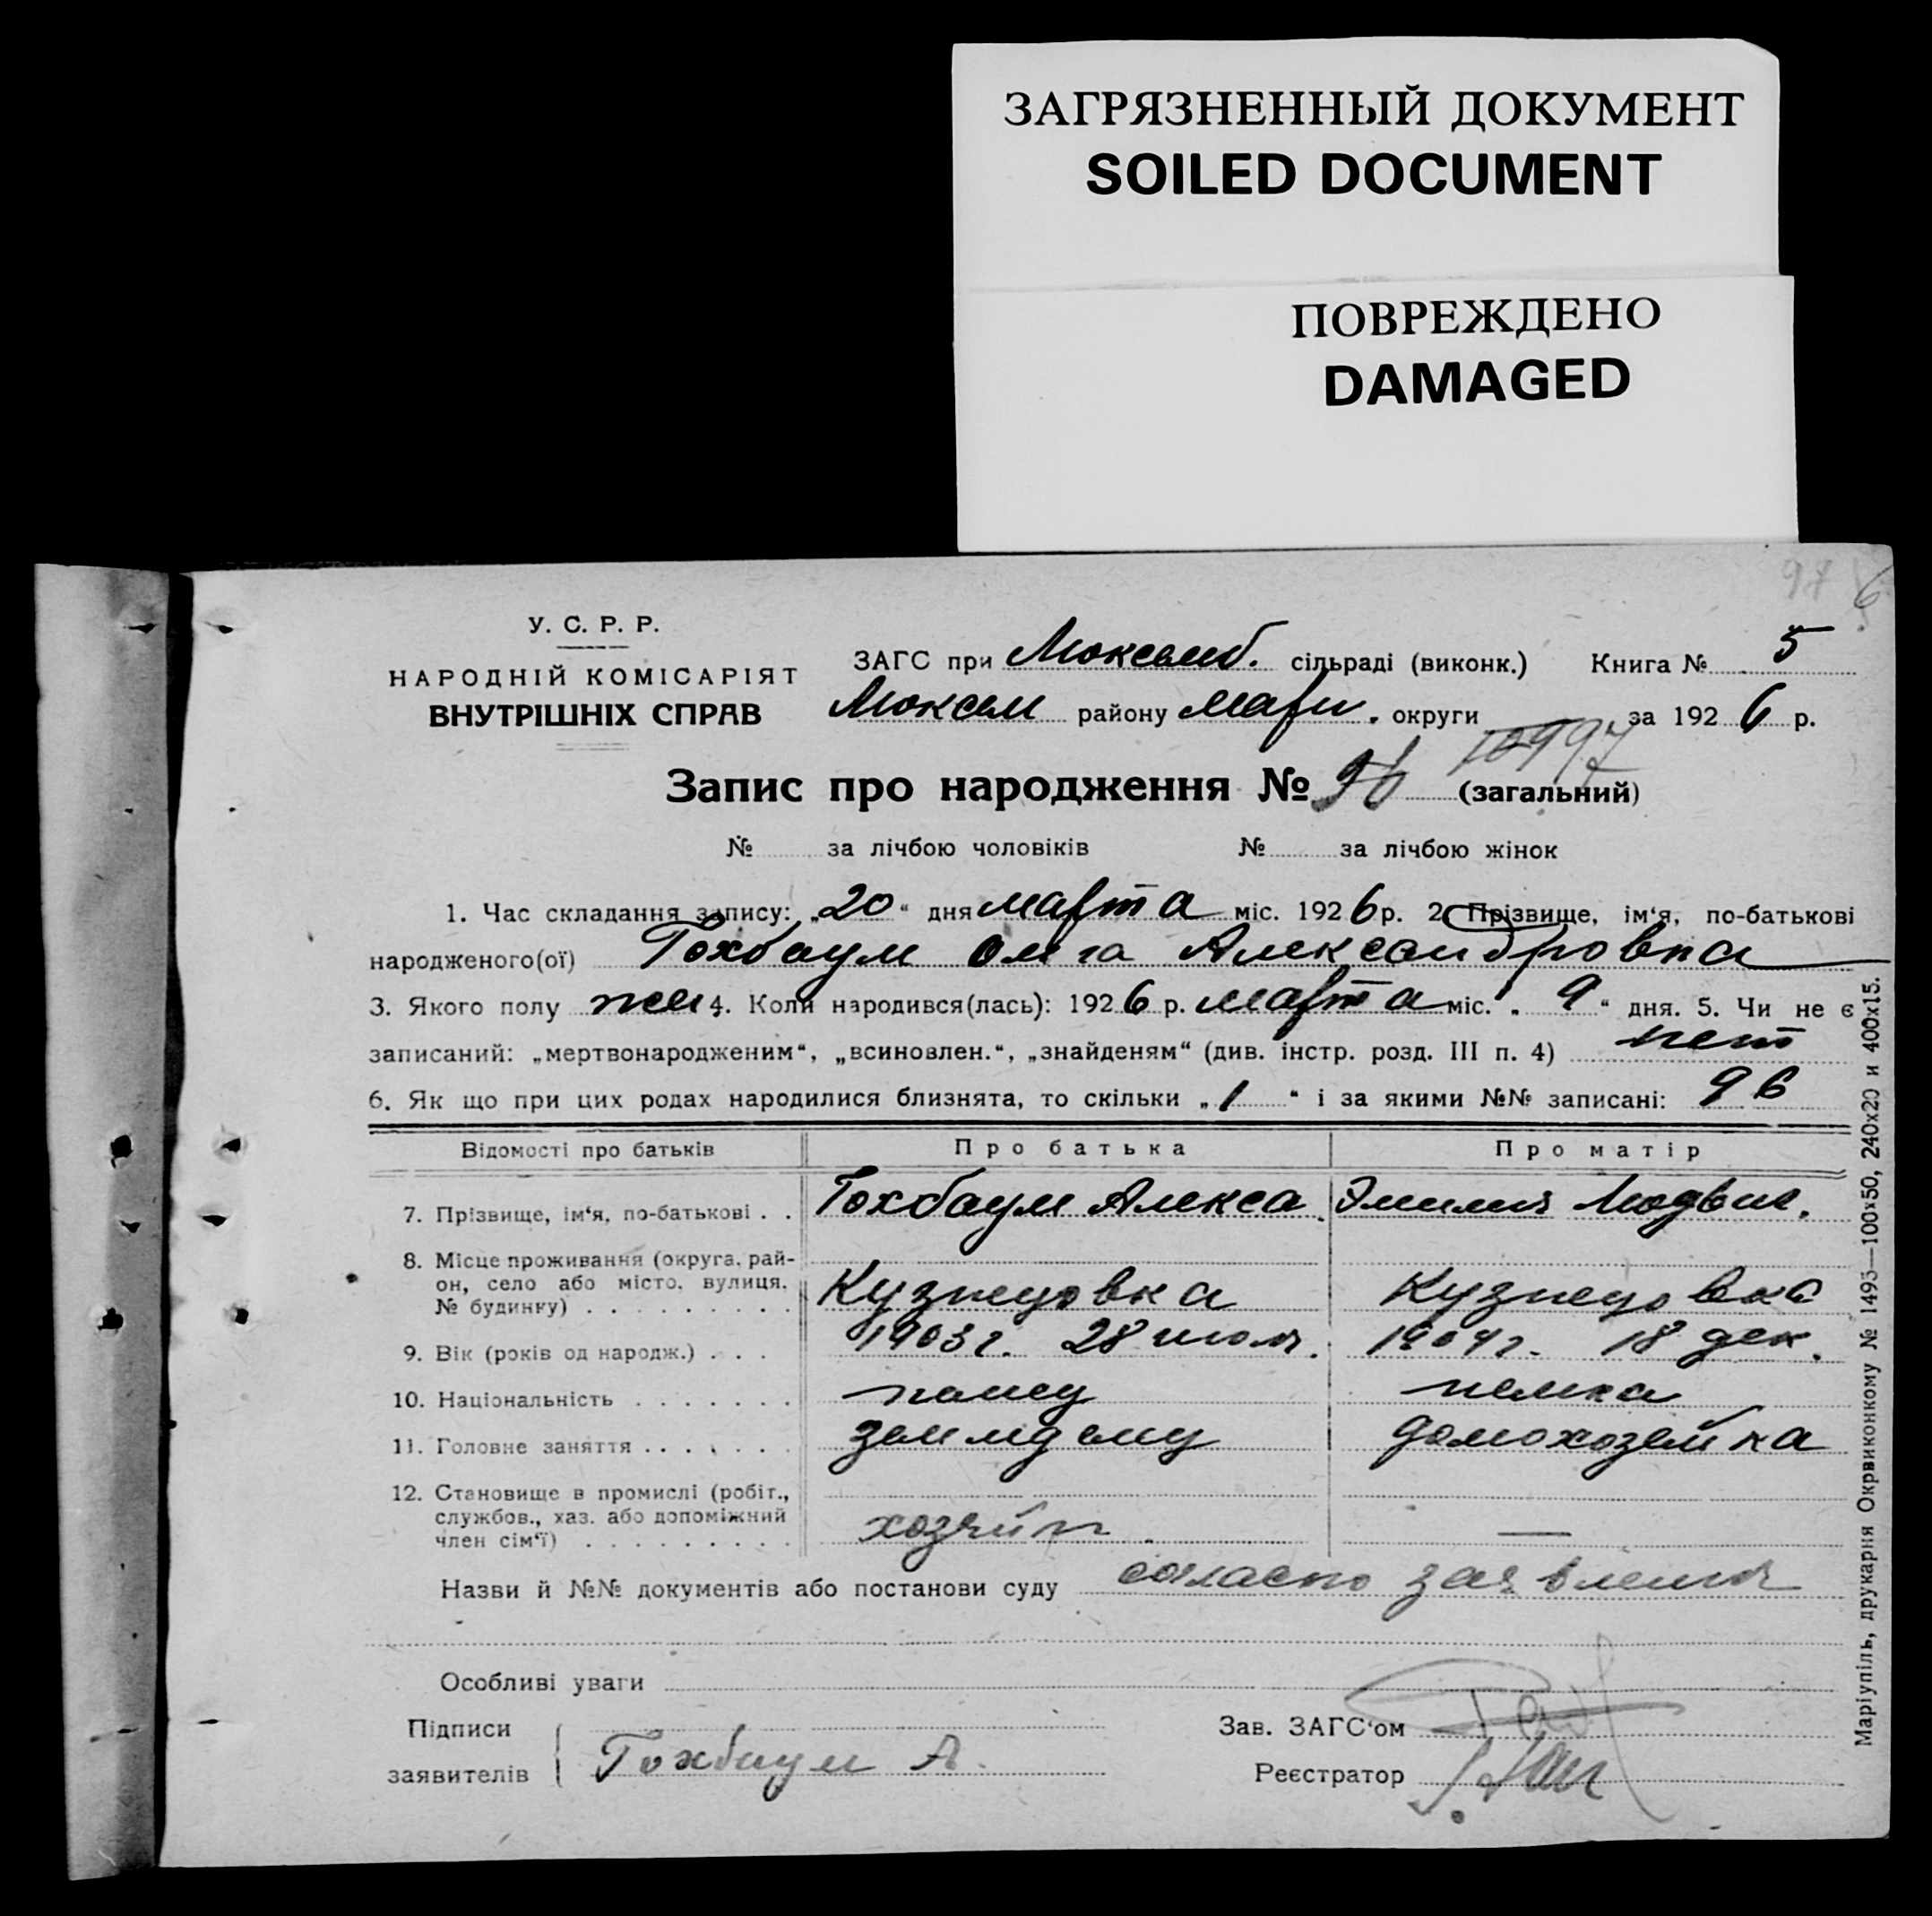 ЗАГРЯЗНЕННЫЙ ДОКУМЕНТ
SOILED DOCUMENT
ПОВРЕЖДЕНО
DAMAGED
97 6
У. С. Р. Р.
НАРОДНІЙ КОМІСАРІЯТ
ВНУТРІШНІХ СПРАВ
ЗАГС при сільраді (виконк.) Книга № 5
району Мари. округи за 1926 р.
Запис про народження № 96 (загальний)
№ за лічбою чоловіків № за лічбою жінок
1. Час складання запису: „20“ дня марта міс. 1926 р. 2. Прізвище, ім‘я, по-батькові
народженого(ої) Гохбаум Олга Александровна
3. Якого полу жен 4. Коли народився(лась): 1926 р. марта міс. „9“ дня. 5. Чи не є
записаний: „мертвонародженим“, „всиновлен.“, „знайденям“ (див. інстр. розд. III п. 4) нет
6. Як що при цих родах народилися близнята, то скільки „1“ і за якими №№ записані: 96
Відомості про батьків Про батька Про матір
7. Прізвище, ім‘я, по-батькові . . Гохбаум Алекса. Эмилия Людвиг.
8. Місце проживання (округа, рай-
он, село або місто, вулиця,
№ будинку) . . . . . . . . . Кузнецовка Кузнецовка
9. Вік (років од народж.) . . . 1903 г. 28 июля. 1904 г. 18 дек.
10. Національність . . . . . . . немец немка
11. Головне заняття . . . . . . . домохозейка
12. Становище в промислі (робіт.,
службов., хаз. або допоміжний
член сім‘ї) . . . . . . . . . хозяйн —
Назви й №№ документів або постанови суду согласно заявления
Особливі уваги
Підписи
заявителів Гохбаум А.
Зав. ЗАГС‘ом
Реєстратор
Маріупіль, друкарня Окрвиконкому № 1493—100х50, 240х20 и 400х15.